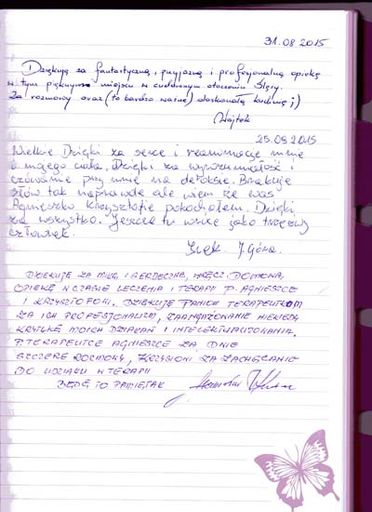 31.08.2015
Dziękuję za fantastyczną, przyjazną i profesjonalną opiekę
w tym pięknym miejscu w cudownym otoczeniu Ślęży.
Za rozmowy oraz (to bardzo ważne) doskonałą kuchnię ;)
Wojtek
25.08.2015
Wielkie Dzięki za serce i reanimację mnie
i mojego ciała. Dzięki za wyrozumiałość i
czuwanie przy mnie na detoksie. Brakuje
słów tak naprawdę ale wiem że was
Agnieszko Krzysztofie pokochałem. Dzięki
za wszystko. Jeszcze tu wrócę jako trzeźwy
człowiek.
Jacek. J. Góra.
DZIĘKUJĘ ZA MIŁĄ I SERDECZNĄ, WRĘCZ DOMOWĄ,
OPIEKĘ W CZASIE LECZENIA I TERAPII P. AGNIESZCE
I KRZYSZTOFOWI. DZIĘKUJĘ PANIOM TERAPEUTKOM
ZA ICH PROFESJONALIZM, ZAANGAŻOWANIE NIEKIEDY
KRYTYKĘ MOICH DZIAŁAŃ I INTELEKTUALIZOWANIA.
P. TERAPEUTCE AGNIESZCE ZA DWIE
SZCZERE ROZMOWY, ZA ZACHĘCANIE
DO UDZIAŁU W TERAPII
BĘDĘ TO PAMIĘTAŁ